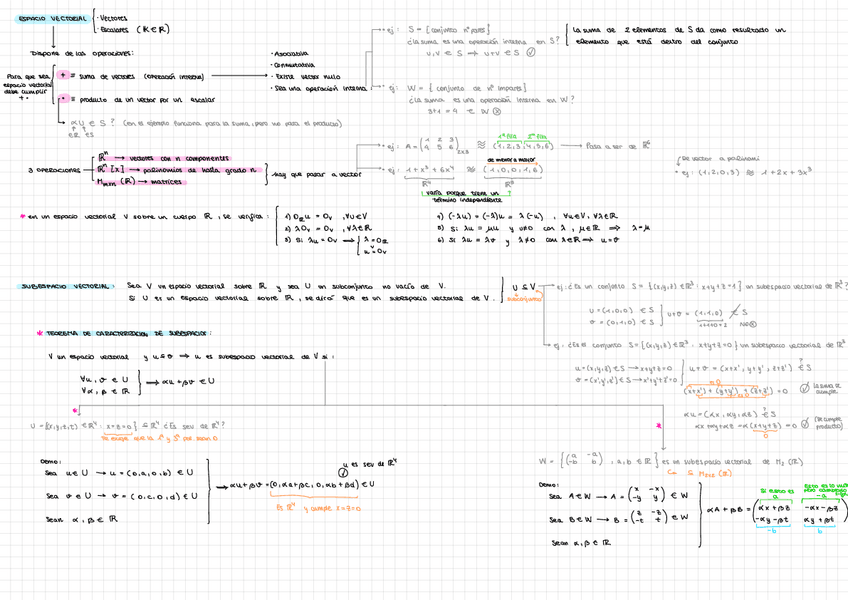 ESPACIO VECTORIAL
· Vectores
· Escalares (K∈ℝ)
Dispone de las operaciones:
Para que sea espacio vectorial debe cumplir + ·
+ ≡ suma de vectores (operación interna)
· ≡ producto de un vector por un escalar
· Asociativa
· Conmutativa
· Existe vector nulo
· Sea una operación interna
αu ∈ S ? (en el ejemplo funciona para la suma, pero no para el producto)
∈ℝ ∈S
· ej: S = {conjunto nº pares}
¿La suma es una operación interna en S?
u,v ∈ S ⇒ u+v ∈ S
La suma de 2 elementos de S da como resultado un
elemento que está dentro del conjunto
· ej: W = { conjunto de nº impares}
¿La suma es una operación interna en W?
3+1 = 4 ∉ W
3 OPERACIONES
ℝⁿ → vectores con n componentes
ℝⁿ[x] → polinomios de hasta grado n
Mmxn (ℝ) → matrices
hay que pasar a vector
· ej: A = (1 2 3 / 4 5 6)2x3 ≋ (1,2,3,4,5,6) → Pasa a ser de ℝ⁶
1ª fila 2ª fila
de menor a mayor
· ej: 1+x³+6x⁴ ≋ (1,0,0,1,6)
ℝ⁴ ℝ⁵
varía porque tiene un
término independiente
De vector a polinomi
· ej: (1,2,0,3) ≋ 1+2x+3x³
* en un espacio vectorial V sobre un cuerpo ℝ, se verifica:
1) 0ℝu = 0v , ∀u∈V
2) λ0v = 0v , ∀λ∈ℝ
3) Si λu = 0v → λ=0ℝ
u=0v
4) (-λu) = (-λ)u = λ(-u) , ∀u∈V, ∀λ∈ℝ
5) Si λu = μu y u≠0 con λ, μ∈ℝ ⇒ λ=μ
6) Si λu = λv y λ≠0 con λ∈ℝ ⇒ u=v
SUBESPACIO VECTORIAL:
Sea V un espacio vectorial sobre ℝ y sea U un subconjunto no vacío de V.
Si U es un espacio vectorial sobre ℝ, se dirá que es un subespacio vectorial de V.
U ⊆ V
subconjunto
ej: ¿Es un conjunto S = {(x,y,z) ∈ℝ³: x+y+z=1} un subespacio vectorial de ℝ³?
u=(1,0,0) ∈ S
v=(0,1,0) ∈ S
u+v = (1,1,0) ∉ S
1+1+0=2 no
ej: ¿Es el conjunto S={(x,y,z)∈ℝ³: x+y+z=0} un subespacio vectorial de ℝ
u=(x,y,z)∈S → x+y+z=0
v=(x',y',z')∈S → x'+y'+z'=0
u+v = (x+x', y+y', z+z') ∈ S
(x+x') + (y+y') + (z+z') = 0
La suma se cumple
αu = (αx, αy, αz) ∈ S
αx+αy+αz = α(x+y+z) = 0
0
(Se cumple producto)
* TEOREMA DE CARACTERIZACIÓN DE SUBESPACIOS:
V un espacio vectorial y u⊆v ⇒ u es subespacio vectorial de V si:
∀u,v ∈ U
∀α,β ∈ ℝ
⇒ αu+βv ∈ U
U = {(x,y,z,t) ∈ℝ⁴ : x=z=0} ⊆ ℝ⁴ ¿Es sev de ℝ⁴?
Se cumple que la 1ª y 3ª pos. sean 0
Demo:
Sea u∈U → u=(0,a,0,b) ∈ U
Sea v∈U → v=(0,c,0,d) ∈ U
Sean α,β ∈ ℝ
⇒ αu+βv=(0,αa+βc,0,αb+βd)∈U
u es sev de ℝ⁴
Es ℝ⁴ y cumple x=z=0
W = {(a -a / -b b) , a,b ∈ ℝ} es un subespacio vectorial de M₂(ℝ)
⊆ M2x2 (ℝ)
Demo:
Sea A∈W → A = (x -x / -y y) ∈ W
Sea B∈W → B = (z -z / -t t) ∈ W
Sean α,β ∈ ℝ
αA+βB = (αx+βz -αx-βz / -αy-βt αy+βt)
Si esto es a
-a
-b b